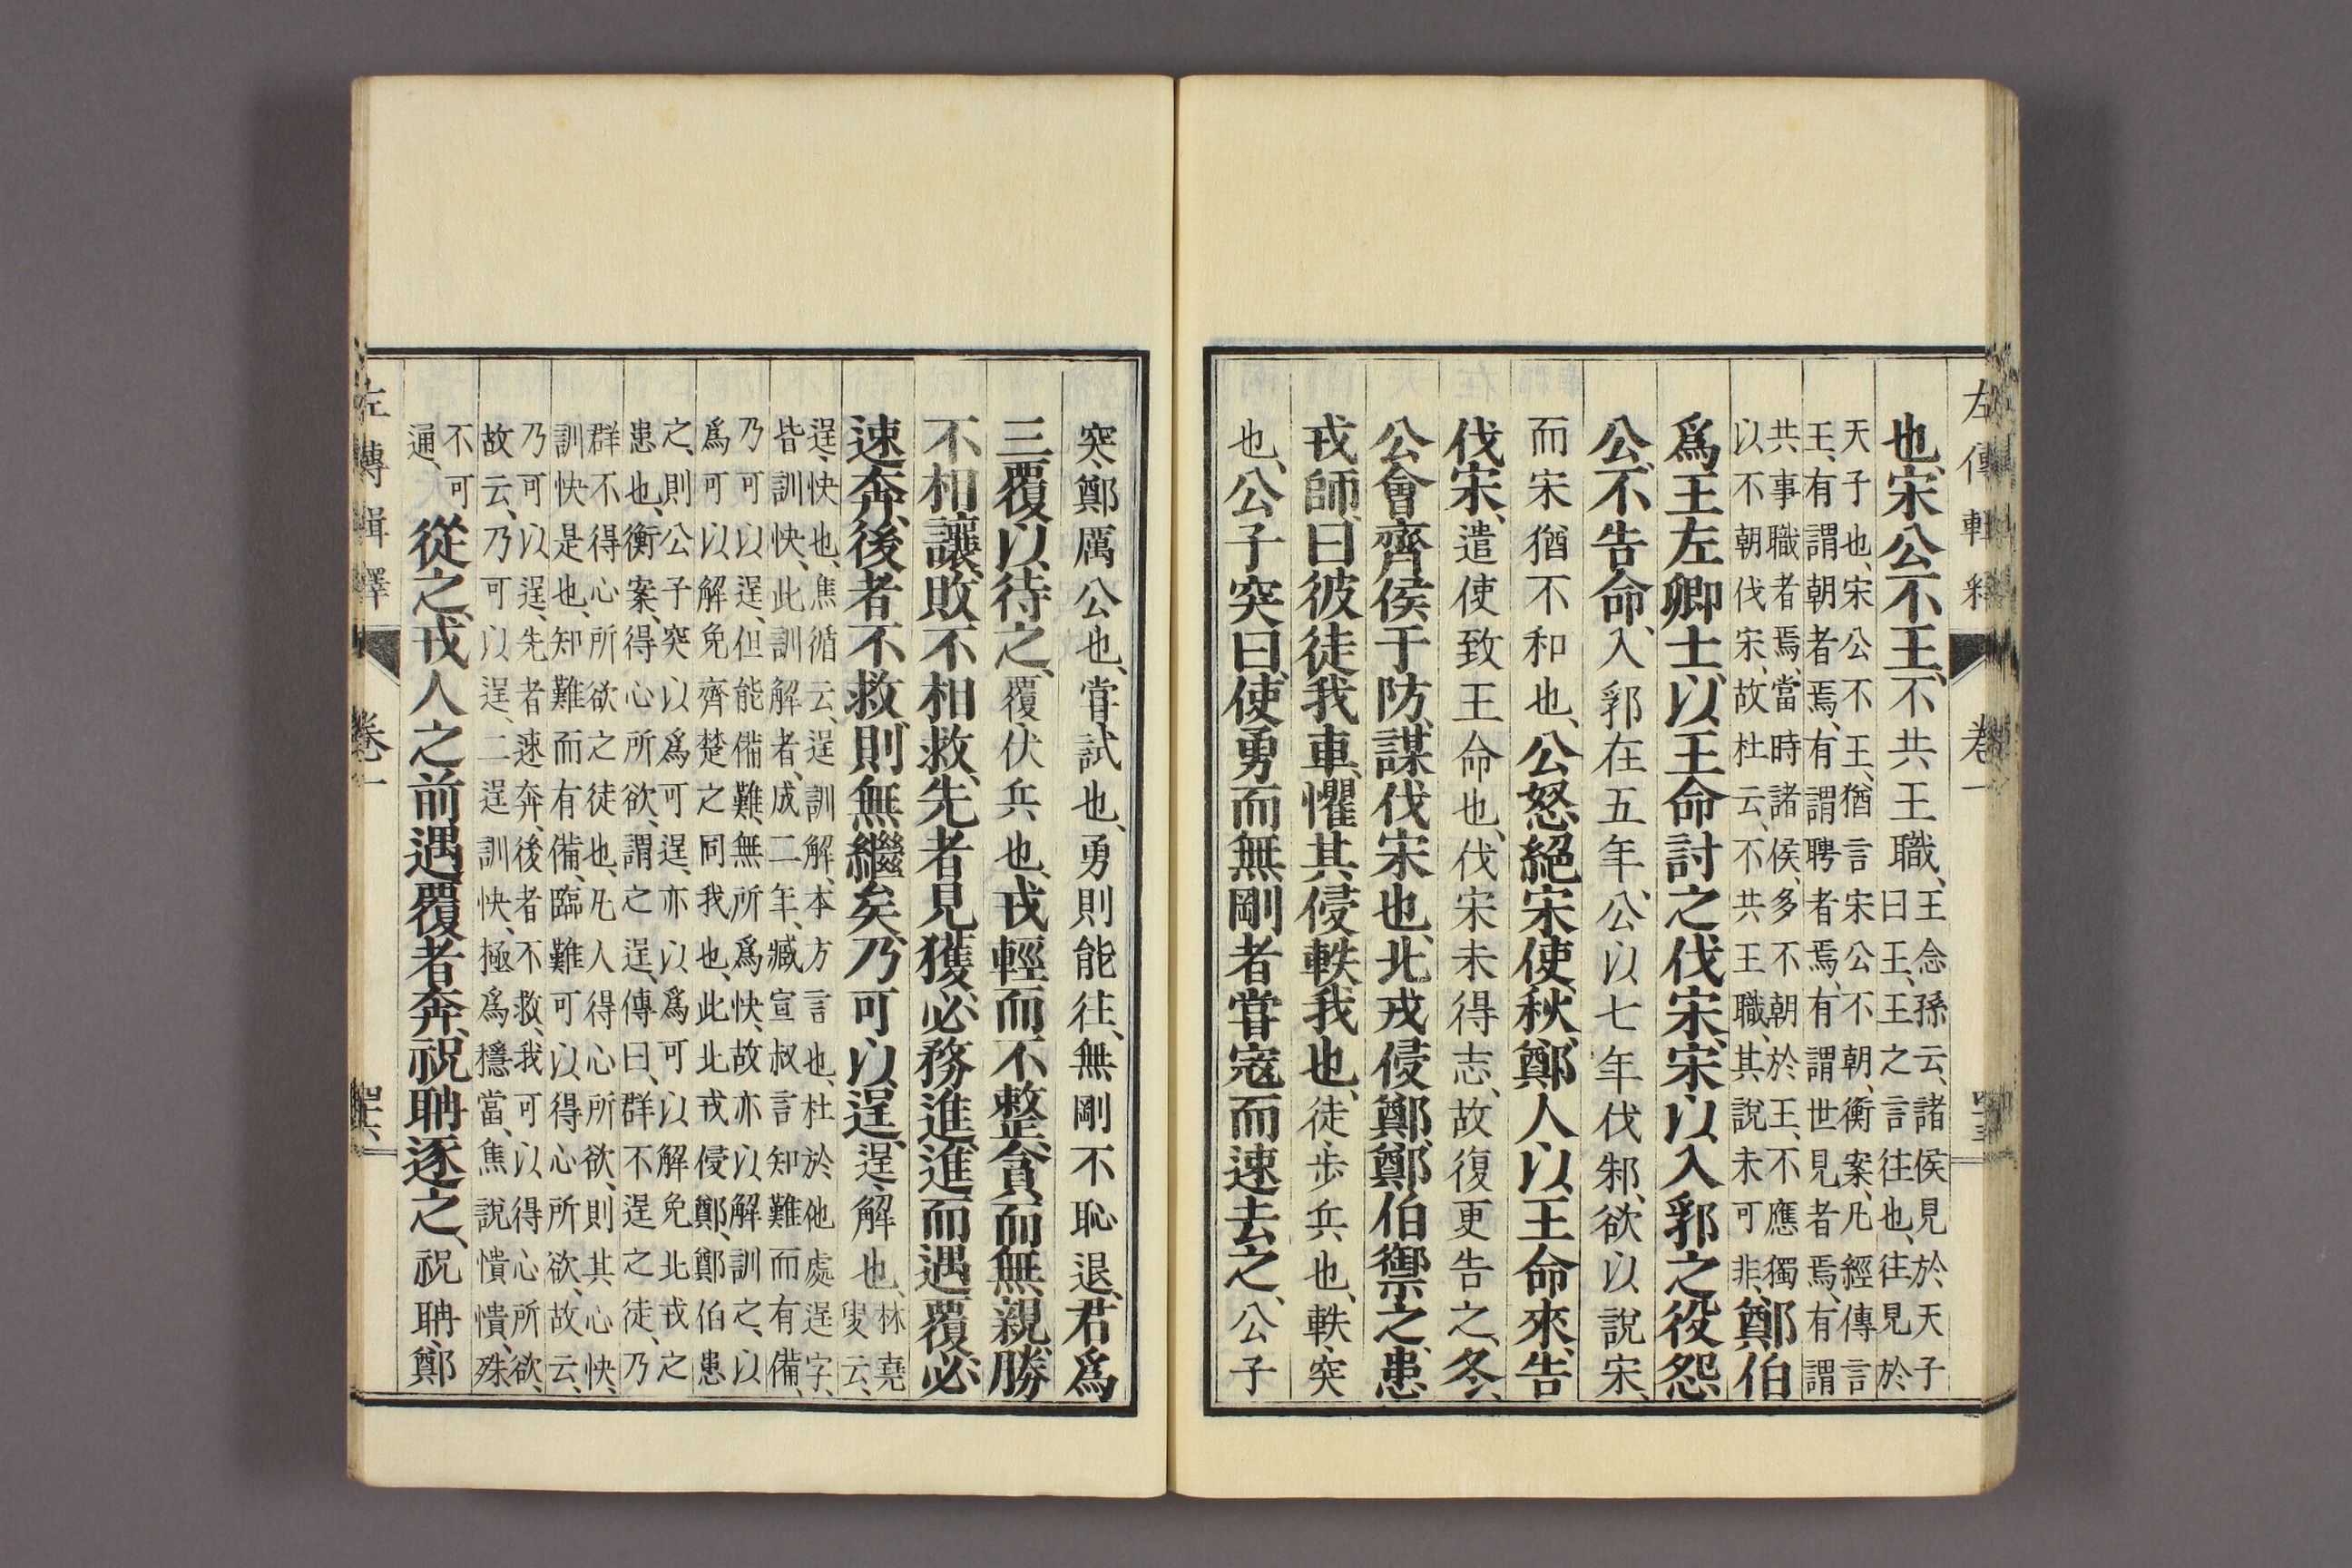 左傳輯釋 卷一
也、宋公不王、不共王職、王念孫云、諸侯見於天子
曰王、王之言往也、往見於
天子也、宋公不王、猶言宋公不朝、衡案、凡經傳言
王、有謂朝者焉、有謂聘者焉、有謂世見者焉、有謂
共事職者焉、當時諸侯、多不朝於王、不應獨
以不朝伐宋、故杜云、不共王職、其說未可非、鄭伯
爲王左卿士、以王命討之、伐宋、宋以入郛之役怨
公、不告命、入郛在五年、公以七年伐邾、欲以說宋、
而宋猶不和也、公怒、絕宋使、秋、鄭人以王命來告
伐宋、遣使致王命也、伐宋未得志、故復更告之、冬、
公會齊侯于防、謀伐宋也、北戎侵鄭、鄭伯禦之、患
戎師、曰、彼徒我車、懼其侵軼我也、徒、步兵也、軼、突
也、公子突曰、使勇而無剛者嘗寇而速去之、公子
突、鄭厲公也、嘗、試也、勇則能往、無剛不恥退、君爲
三覆以待之、覆、伏兵也、戎輕而不整、貪而無親、勝
不相讓、敗不相救、先者見獲、必務進、進而遇覆、必
速奔、後者不救、則無繼矣、乃可以逞、逞、解也、林堯
叟云、
逞、快也、焦循云、逞訓解、本方言也、杜於他處逞字、
皆訓快、此訓解者、成二年、臧宣叔言知難而有備、
乃可以逞、但能備難、無所爲快、故亦以解訓之、以
爲可以解免齊楚之同我也、此北戎侵鄭、鄭伯患
之、則公子突以爲可逞、亦以爲可以解免北戎之
患也、衡案、得心所欲、謂之逞、傳曰、群不逞之徒、乃
群不得心所欲之徒也、凡人得心所欲、則其心快、
訓快是也、知難而有備、臨難可以得心所欲、故云、
乃可以逞、先者速奔、後者不救、我可以得心所欲、
故云、乃可以逞、二逞訓快、極爲穩當、焦說憒憒、殊
不可
通、從之、戎人之前遇覆者奔、祝聃逐之、祝聃、鄭
左傳輯釋 卷一